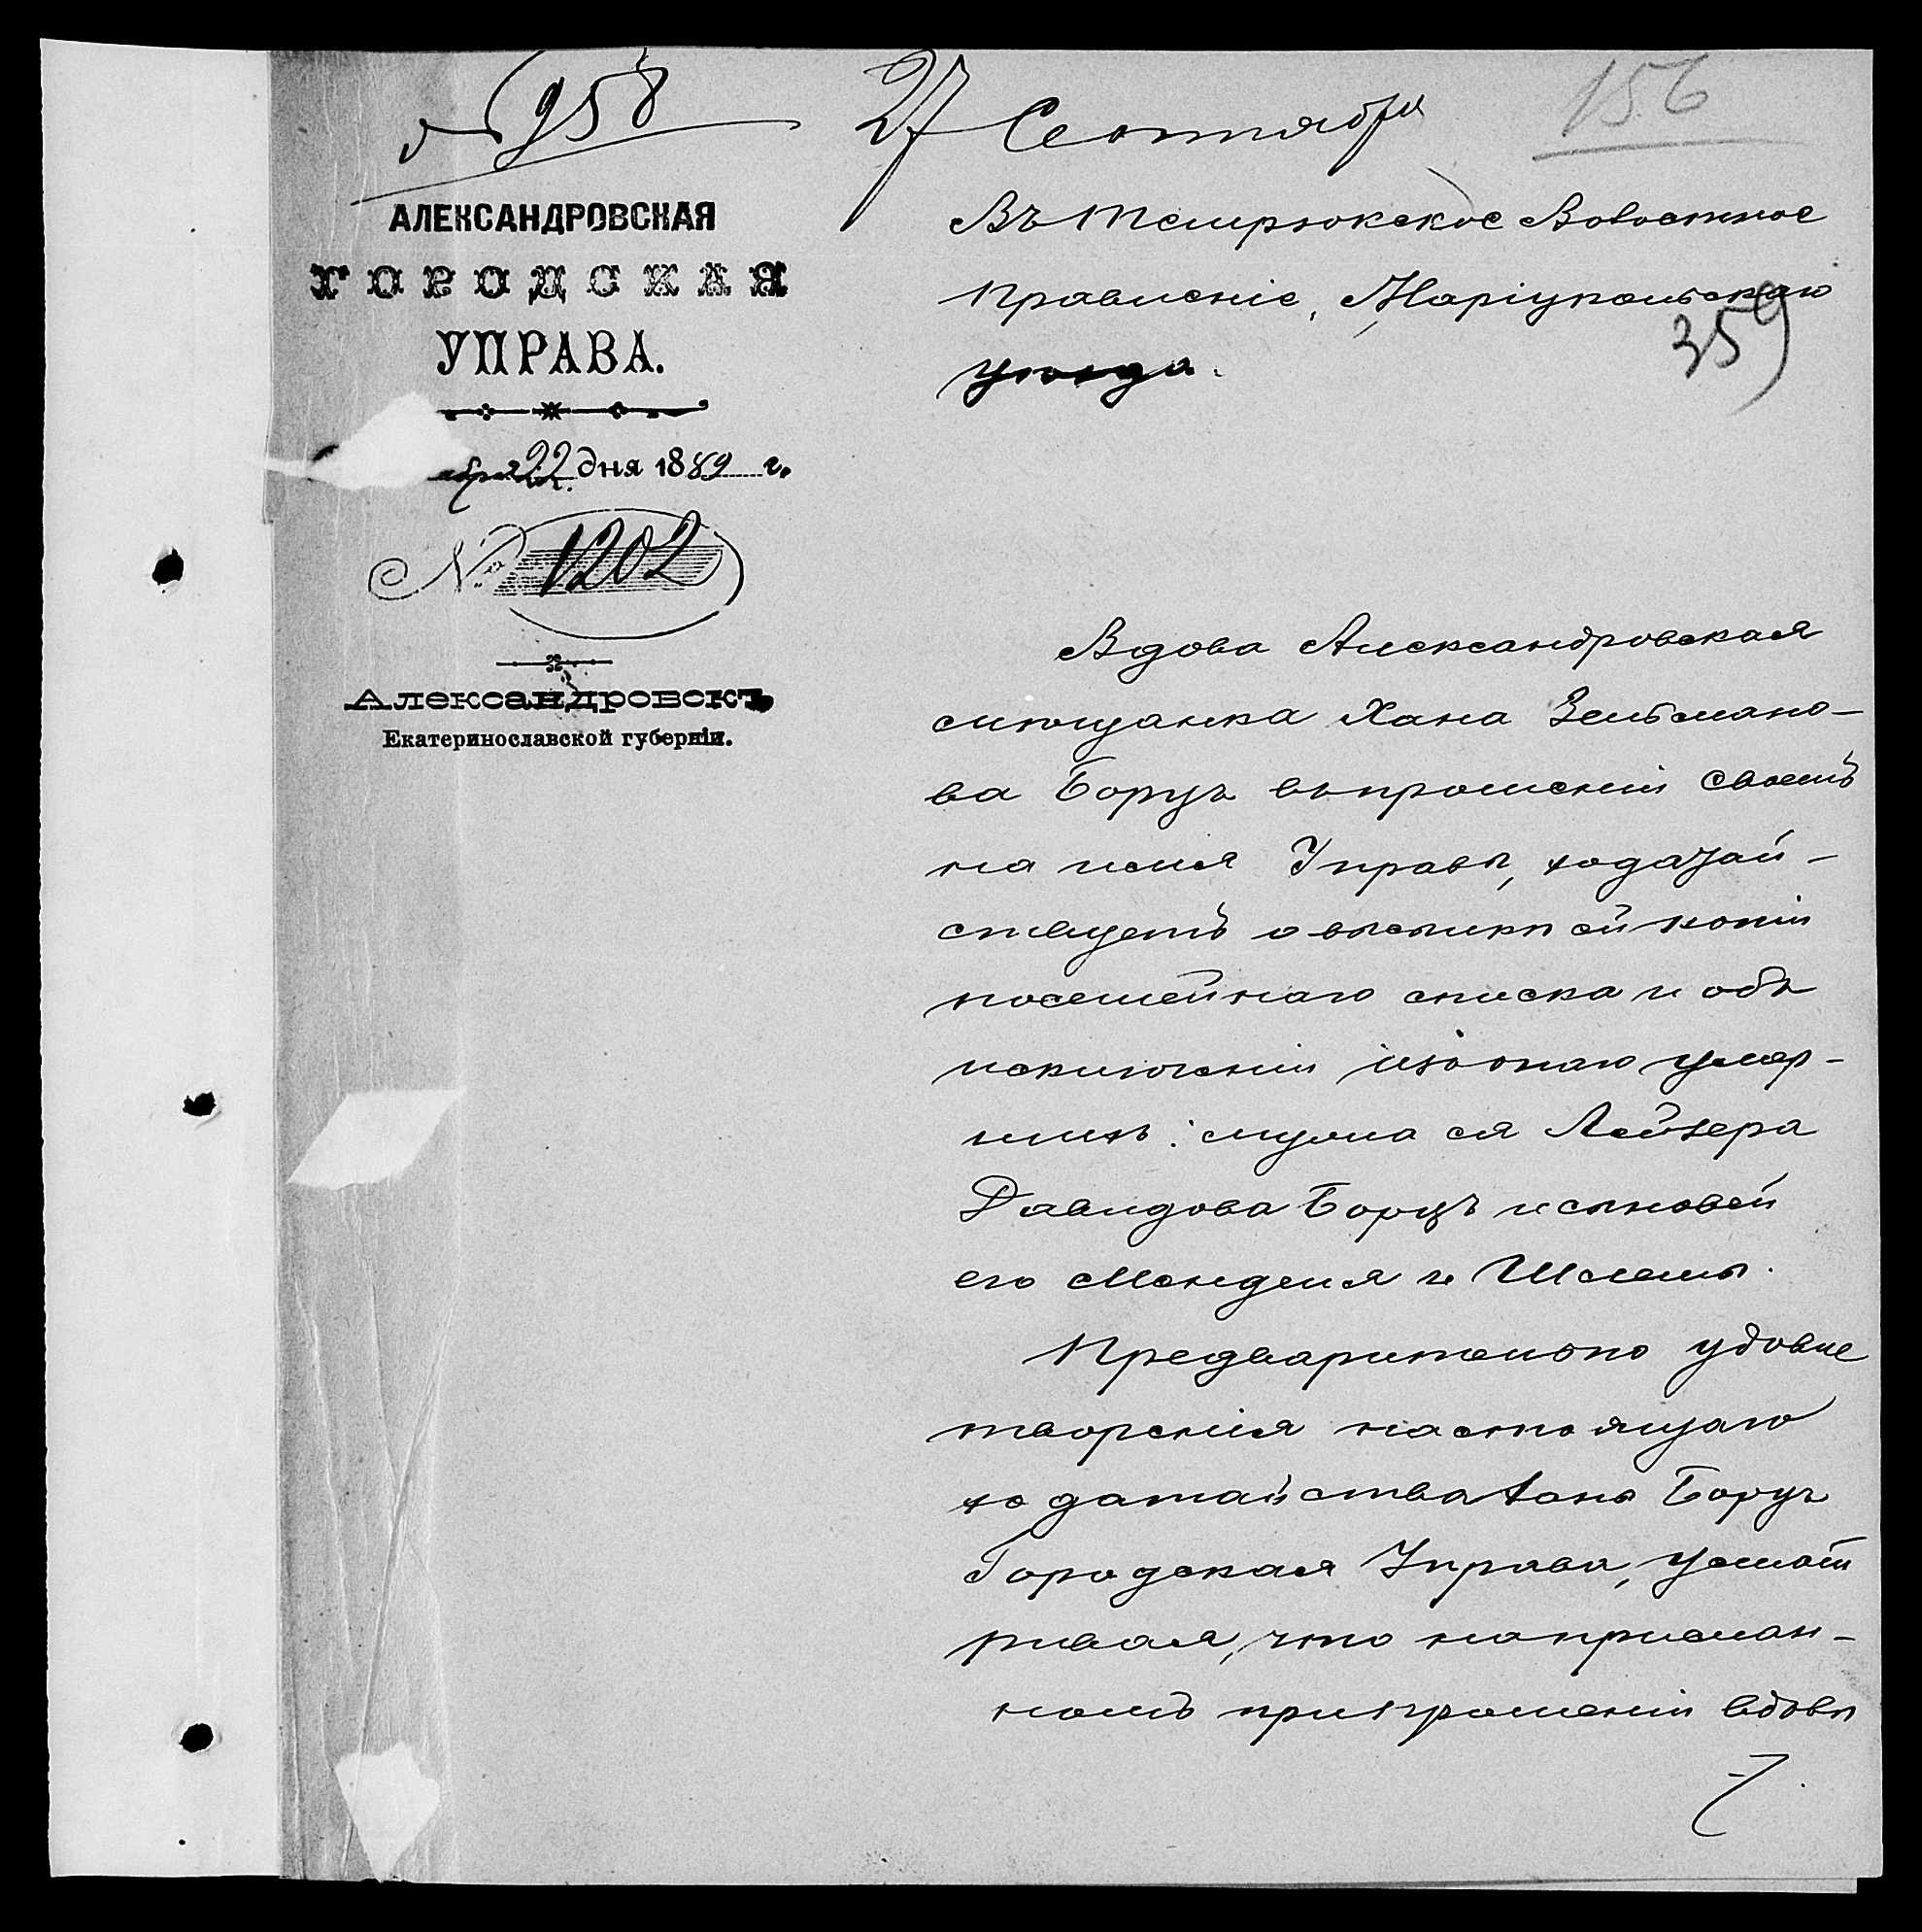 958
27 Сентября
156
АЛЕКСАНДРОВСКАЯ
ГОРОДСКАЯ
УПРАВА.
22 дня 1889 г.
№ 1202
Александровскъ
Екатеринославской губерніи.
Въ Темрюкское Волостное
Правленіе, Маріупольскаго
359
уѣзда.
Вдова Александровская
мѣщанка Хана Зельмано-
ва Борцъ въ прошеніи своемъ
на имя Управы, ходатай-
ствуетъ о высылкѣ ей копіи
посемейнаго списка и объ
исключеніи изъ онаго умер-
шихъ: мужа ея Лейзера
Давидова Борцъ и сыновей
его Менделя и Шлемы.
Предварительно удовле
творенія настоящаго
ходатайства Ханы Борцъ
Городская Управа, усмат
ривая, что на прислан-
номъ при прошеніи вдовы